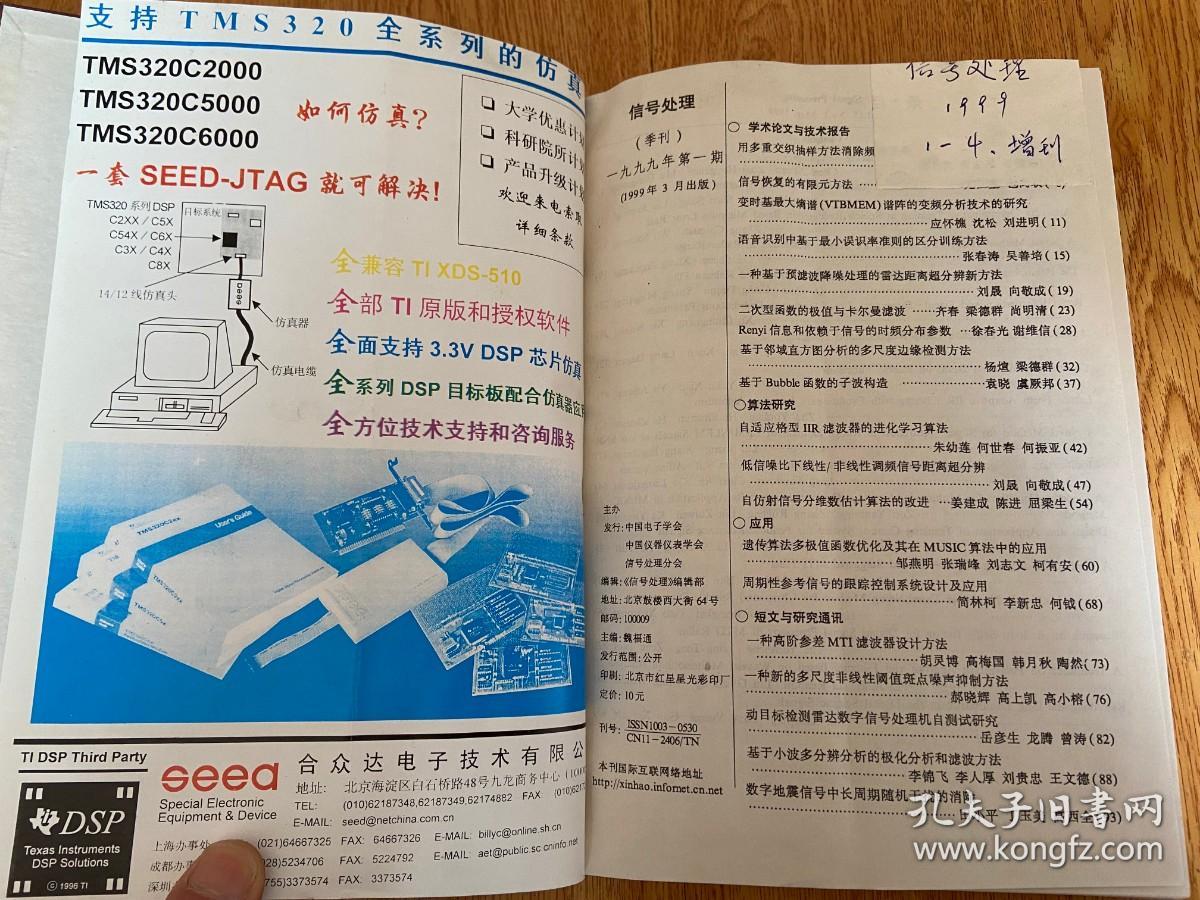 支持TMS320全系列的仿真
TMS320C2000
TMS320C5000
TMS320C6000
如何仿真?
一套 SEED-JTAG 就可解决!
□ 大学优惠计划
□ 科研院所计
□ 产品升级计
欢迎来电索取
详细条款
TMS320 系列 DSP
C2XX / C5X
C54X / C6X
C3X / C4X
C8X
目标系统
14/12 线仿真头
仿真器
仿真电缆
全兼容 TI XDS-510
全部 TI 原版和授权软件
全面支持 3.3V DSP 芯片仿真
全系列 DSP 目标板配合仿真器应
全方位技术支持和咨询服务
TMS320C2xx
User's Guide
TI DSP Third Party
DSP
Texas Instruments
DSP Solutions
© 1996 TI
seed
Special Electronic
Equipment & Device
合众达电子技术有限公
地址: 北京海淀区白石桥路48号九龙商务中心 (1000
TEL: (010)62187348,62187349,62174882 FAX: (010)62
E-MAIL: seed@netchina.com.cn
上海办事处 (021)64667325 FAX: 64667326 E-MAIL: billyc@online.sh.cn
成都办事 028)5234706 FAX: 5224792 E-MAIL: aet@public.sc.cninfo.net
深圳 755)3373574 FAX: 3373574
信号处理
(季刊)
一九九九年第一期
(1999年3月出版)
主办
发行:中国电子学会
中国仪器仪表学会
信号处理分会
编辑:《信号处理》编辑部
地址:北京鼓楼西大街64号
邮码:100009
主编:魏福通
发行范围:公开
印刷:北京市红星星光彩印厂
定价:10元
刊号:ISSN1003-0530
CN11-2406/TN
本刊国际互联网络地址
http://xinhao.infornet.cn.net
信号处理
1999
1-4、增刊
○ 学术论文与技术报告
用多重交织抽样方法消除频
信号恢复的有限元方法
变时基最大熵谱(VTBMEM)谱阵的变频分析技术的研究
应怀樵 沈松 刘进明(11)
语音识别中基于最小误识率准则的区分训练方法
张春涛 吴善培(15)
一种基于预滤波降噪处理的雷达距离超分辨新方法
刘晟 向敬成(19)
二次型函数的极值与卡尔曼滤波 ······齐春 梁德群 尚明清(23)
Renyi信息和依赖于信号的时频分布参数 ···徐春光 谢维信(28)
基于邻域直方图分析的多尺度边缘检测方法
杨煊 梁德群(32)
基于Bubble函数的子波构造 ············袁晓 虞厥邦(37)
○算法研究
自适应格型IIR滤波器的进化学习算法
朱幼莲 何世春 何振亚(42)
低信噪比下线性/非线性调频信号距离超分辨
刘晟 向敬成(47)
自仿射信号分维数估计算法的改进 ···姜建成 陈进 屈梁生(54)
○ 应用
遗传算法多极值函数优化及其在MUSIC算法中的应用
邹燕明 张瑞峰 刘志文 柯有安(60)
周期性参考信号的跟踪控制系统设计及应用
简林柯 李新忠 何钺(68)
○ 短文与研究通讯
一种高阶参差MTI滤波器设计方法
胡灵博 高梅国 韩月秋 陶然(73)
一种新的多尺度非线性阈值斑点噪声抑制方法
郝晓辉 高上凯 高小榕(76)
动目标检测雷达数字信号处理机自测试研究
岳彦生 龙腾 曾涛(82)
基于小波多分辨分析的极化分析和滤波方法
李锦飞 李人厚 刘贵忠 王文德(88)
数字地震信号中长周期随机干扰的消除
孔夫子旧书网
www.kongfz.com